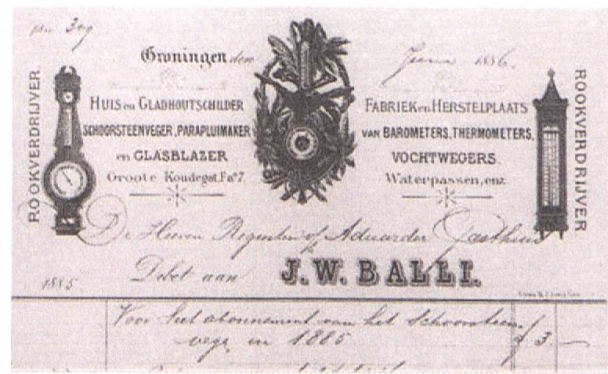 No 309
Groningen den Juni 1886.
ROOKVERDRIJVER.
HUIS en GLADHOUTSCHILDER
SCHOORSTEENVEGER, PARAPLUIMAKER
en GLASBLAZER
Groote Koudegat. F a no 7.
FABRIEK en HERSTELPLAATS
VAN BAROMETERS, THERMOMETERS,
VOCHTWEGERS.
Waterpassen, enz.
ROOKVERDRIJVER
De Heeren Regenten of Aduarder Gasthuis
Debet aan J. W. BALLI.
1885
Voor het abonnement van het Schoorsteen
vege in 1885 f 3.—